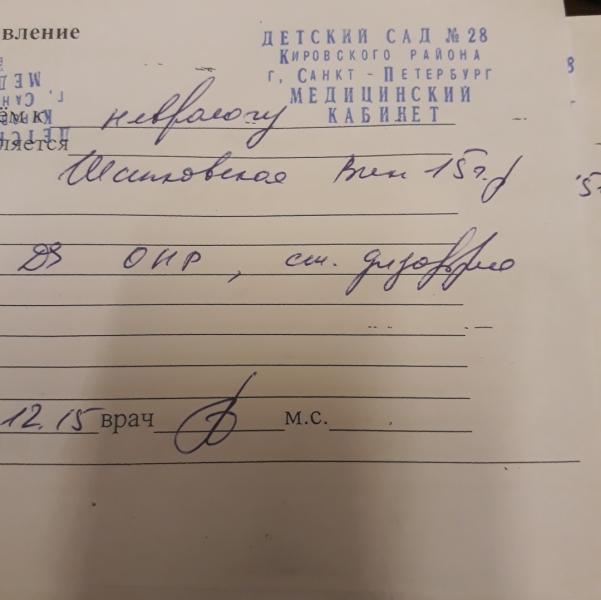 вление
ДЕТСКИЙ САД № 28
КИРОВСКОГО РАЙОНА
Г, САНКТ - ПЕТЕРБУРГ
МЕДИЦИНСКИЙ
КАБИНЕТ
ём к неврологу
ляется
15 г.р
Дз ОНР, ст. дизартрия
12.15 врач м.с.